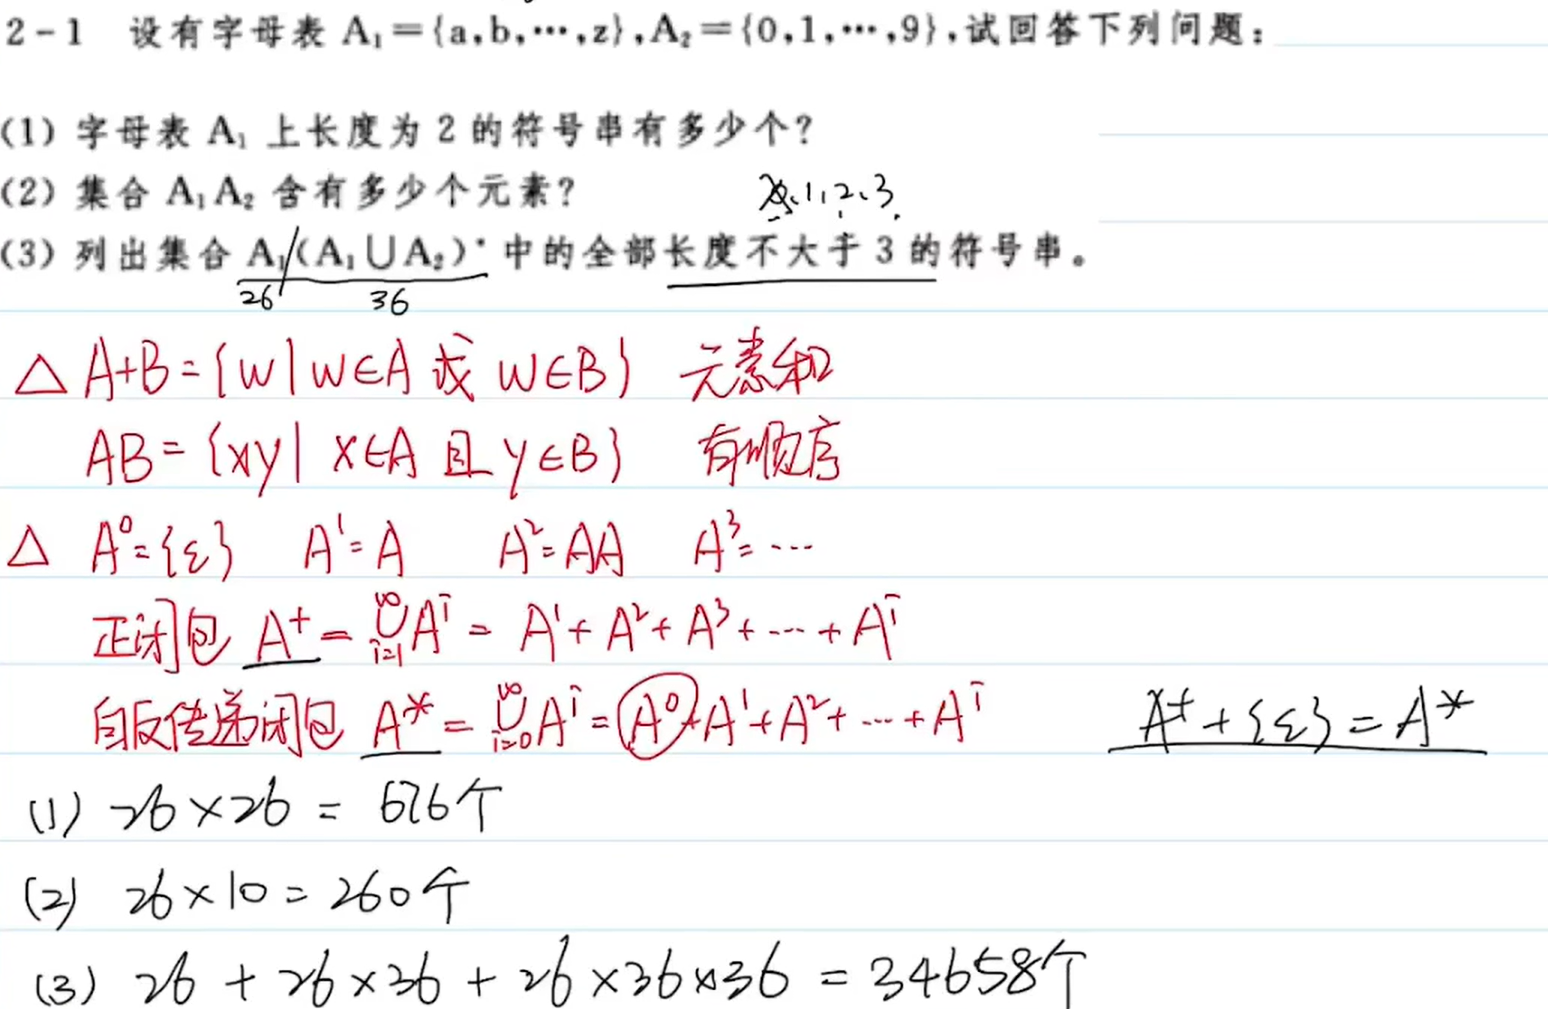 2-1 设有字母表 A₁={a,b,…,z},A₂={0,1,…,9},试回答下列问题:
(1) 字母表 A₁ 上长度为 2 的符号串有多少个?
(2) 集合 A₁A₂ 含有多少个元素?
1,2,3
(3) 列出集合 A₁(A₁∪A₂)* 中的全部长度不大于 3 的符号串。
26 36
△ A+B={w|w∈A 或 w∈B} 元素和
AB={xy| x∈A 且 y∈B} 有顺序
△ A⁰={ε} A¹=A A²=AA A³=…
正闭包 A⁺=⋃_{i=1}^∞ Aⁱ = A¹+A²+A³+…+Aⁱ
自反传递闭包 A*=⋃_{i=0}^∞ Aⁱ=A⁰+A¹+A²+…+Aⁱ A⁺+{ε}=A*
(1) 26×26=676个
(2) 26×10=260个
(3) 26+26×36+26×36×36=34658个